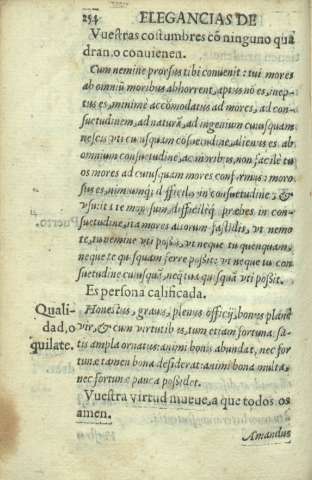 254 ELEGANCIAS DE
Vuestras costumbres cõ ninguno qua
dran, o conuienen.
Cum nemine prorsus tibi conuenit: tui mores
ab omniũ moribus abhorrent, aptus nõ es, inep-
tus es, minimè accõmodatus ad mores, ad con-
suetudinem, ad naturã, ad ingenium cuiusquam
nescis vti cuiusquam cõsuetudine, alienus es ab
omnium consuetudine, ac moribus, non facilè tu
os mores ad cuiusquam mores conformas: moro
sus es, nimiumq; difficilis in consuetudine, &
vsu: ita te morosum, difficilẽq; præbes in con-
suetudine, ita mores aliorum fastidis, vt nemo
te, tu nemine vti possis, vt neque tu quenquam,
neque te quisquam ferre possit: vt neque tu con
suetudine cuiusquã, neq; tua quisquã vti possit.
Es persona calificada.
Quali-
dad, o
quilate.
Honestus, grauis, plenus officij, bonus planè
vir, & cum virtutibus, tum etiam fortuna sa-
tis ampla ornatus: animi bonis abundat, nec for
tunæ tamen bona desiderat: animi bona multa,
nec fortunæ pauca possidet.
Vuestra virtud mueue, a que todos os
amen.
Amandus